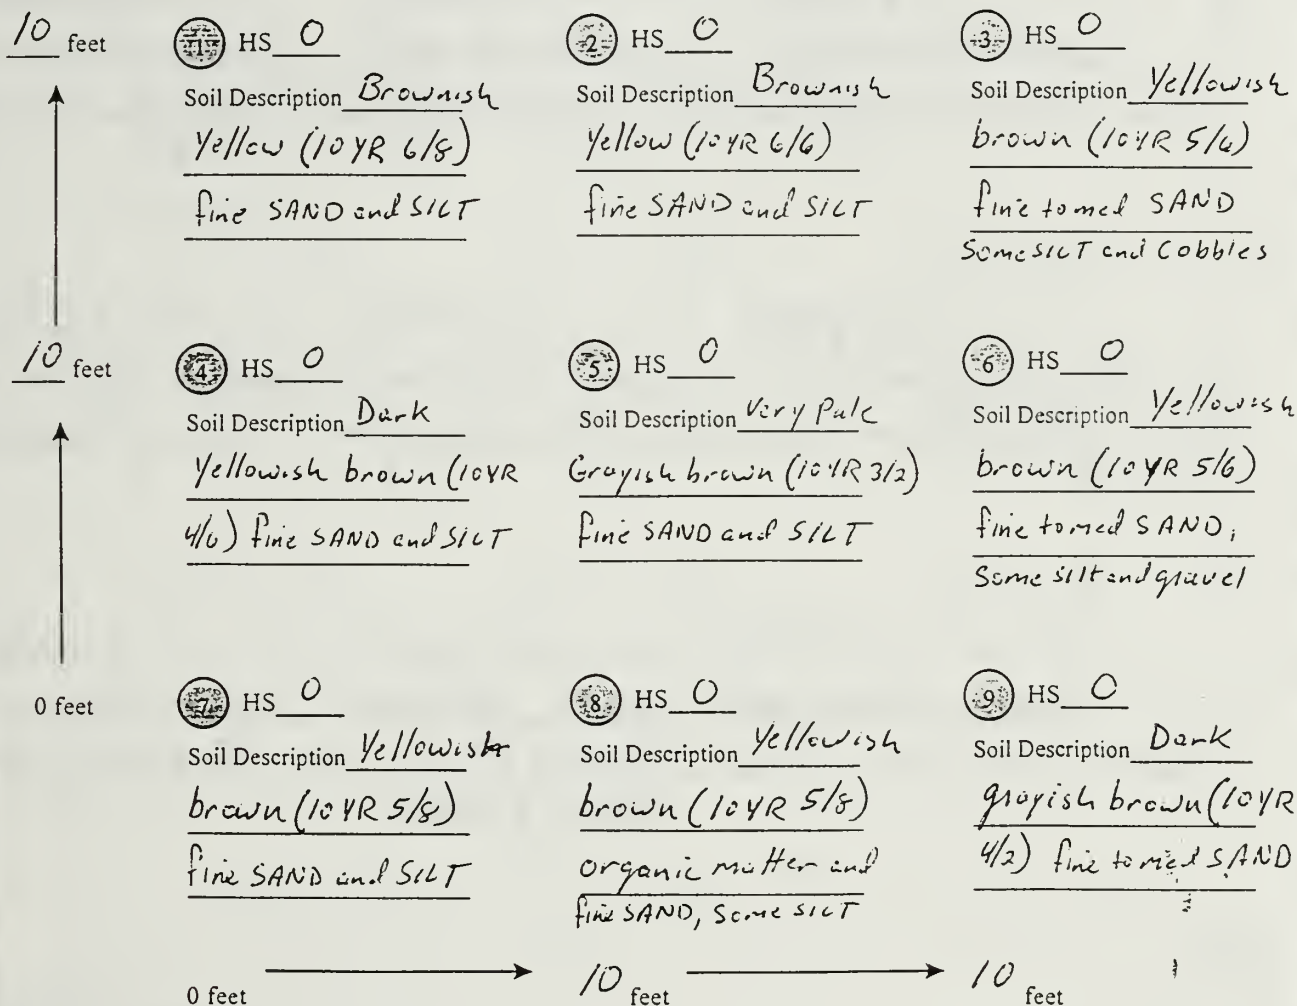 10 feet
1 HS 0
Soil Description Brownish
Yellow (10 YR 6/8)
fine SAND and SILT
2 HS 0
Soil Description Brownish
Yellow (10 YR 6/6)
fine SAND and SILT
3 HS 0
Soil Description Yellowish
brown (10 YR 5/6)
fine to med SAND
Some SILT and Cobbles
10 feet
4 HS 0
Soil Description Dark
Yellowish brown (10 YR
4/6) fine SAND and SILT
5 HS 0
Soil Description Very Pale
Grayish brown (10 YR 3/2)
fine SAND and SILT
6 HS 0
Soil Description Yellowish
brown (10 YR 5/6)
fine to med SAND,
Some silt and gravel
0 feet
7 HS 0
Soil Description Yellowish
brown (10 YR 5/8)
fine SAND and SILT
8 HS 0
Soil Description Yellowish
brown (10 YR 5/8)
organic matter and
fine SAND, Some SILT
9 HS 0
Soil Description Dark
grayish brown (10 YR
4/2) fine to med SAND
0 feet
10 feet
10 feet